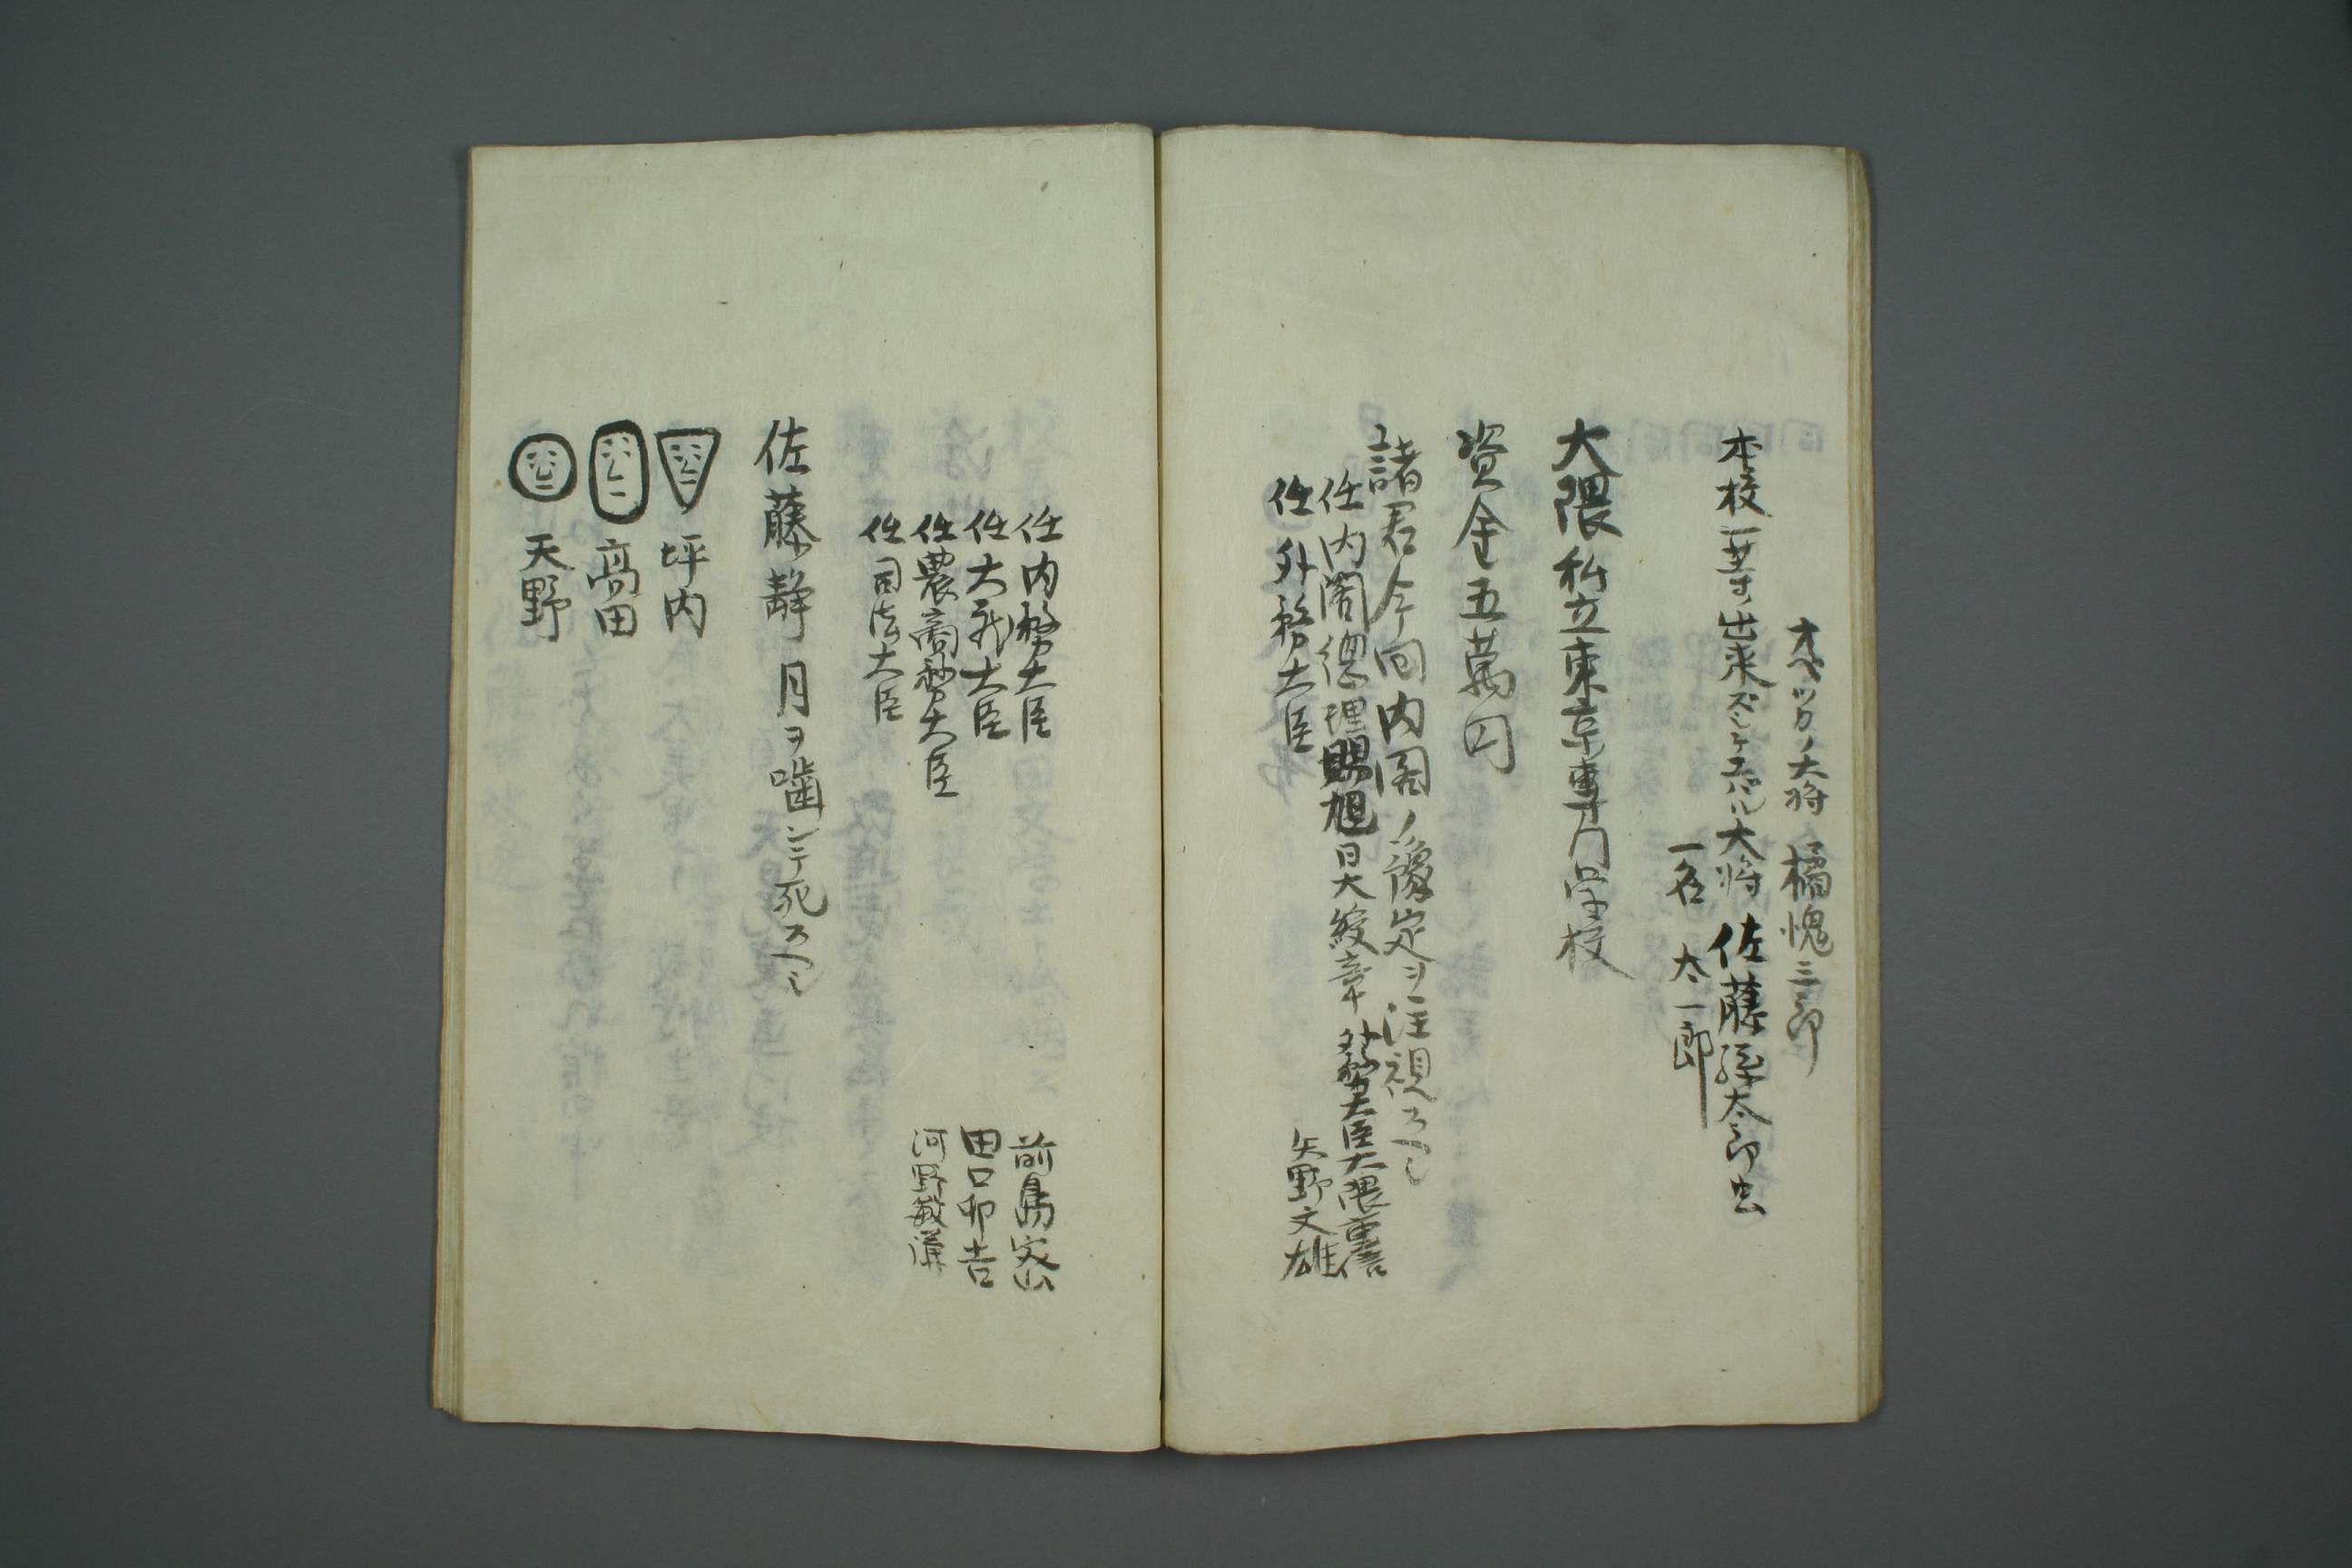 オベッカノ大将 橘槐三郎
本校一等ノ出来ズシテエバル大将 佐藤孫太郎虫
一名 太一郎
大隈私立東京専門学校
資金五萬円
諸君今回内閣ノ豫定ヲ注視スヘシ
任内閣總理賜旭日大綬章 外務大臣大隈重信
任外務大臣 矢野文雄
任内務大臣 前島密
任大蔵大臣 田口卯吉
任農商務大臣 河野敏鎌
任司法大臣
佐藤静 月ヲ噛ンデ死スヘシ
坪内
高田
天野